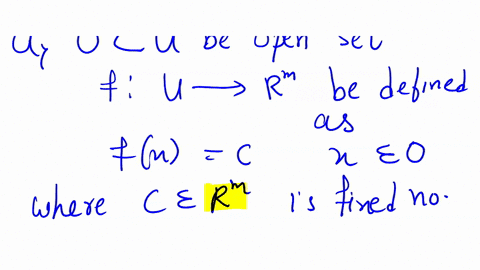 U, O ⊂ U be open set
f : U → R^m be defined
as
f(x) = C x ε O
where C ε R^m is fixed no.